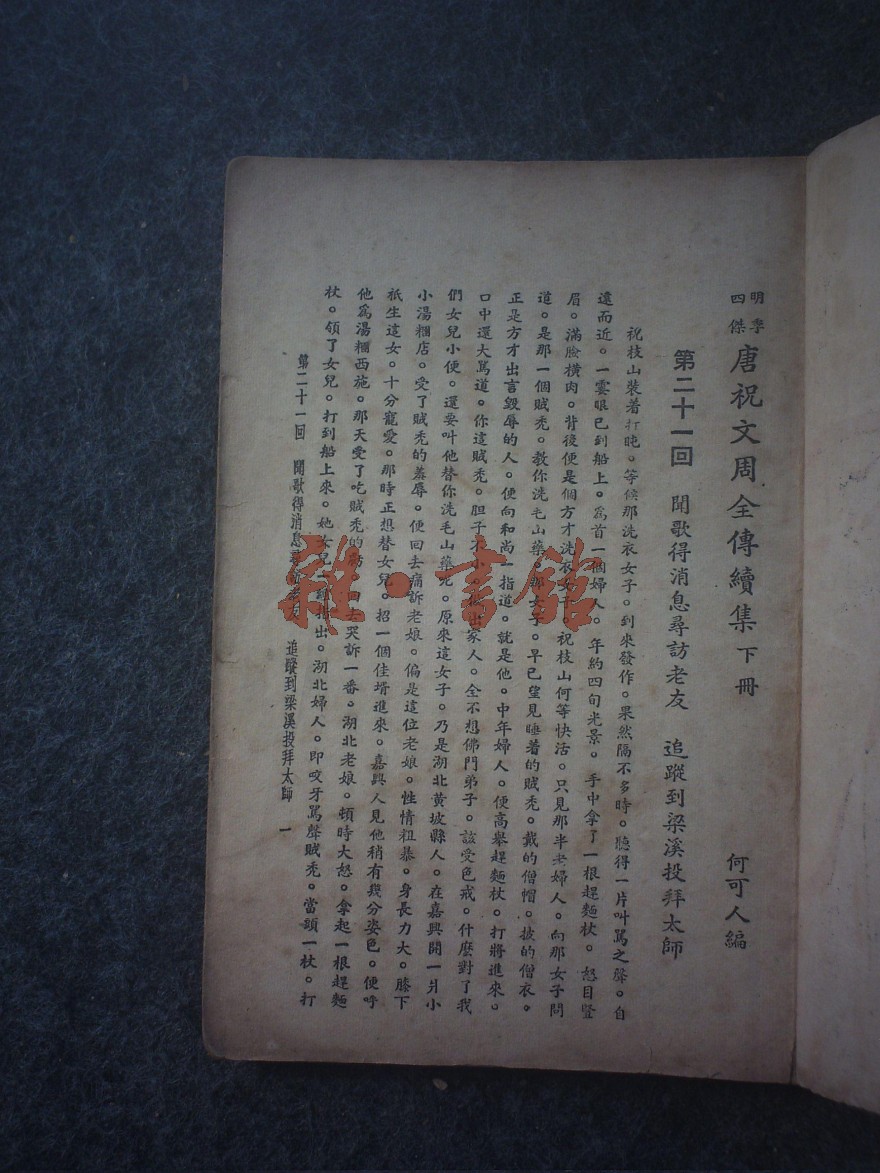 明季四傑 唐祝文周全傳續集 下冊
何可人編
第二十一回 聞歌得消息尋訪老友 追蹤到梁溪投拜太師
祝枝山裝着打盹。等候那洗衣女子。到來發作。果然隔不多時。聽得一片叫罵之聲。自
遠而近。一霎眼已到船上。為首一個婦人。年約四旬光景。手中拿了一根趕麵杖。怒目豎
眉。滿臉橫肉。背後便是個方才洗衣女子。祝枝山何等快活。只見那半老婦人。向那女子問
道。是那一個賊禿。教你洗毛山藥。那女子。早已望見睡着的賊禿。戴的僧帽。披的僧衣。
正是方才出言毀辱的人。便向和尚一指道。就是他。中年婦人。便高舉趕麵杖。打將進來。
口中還大罵道。你這賊禿。胆子不小。出家人。全不想佛門弟子。該受色戒。什麼對了我
們女兒小便。還要叫他替你洗毛山藥。原來這女子。乃是湖北黃坡縣人。在嘉興開一爿小
小湯糰店。受了賊禿的羞辱。便回去痛訴老娘。偏是這位老娘。性情粗暴。身長力大。膝下
祇生這女。十分寵愛。那時正想替女兒。招一個佳壻進來。嘉興人見他稍有幾分姿色。便呼
他為湯糰西施。那天受了吃賊禿的 哭訴一番。湖北老娘。頓時大怒。拿起一根趕麵
杖。領了女兒。打到船上來。她女兒 指出。湖北婦人。即咬牙罵聲賊禿。當頭一杖。打
第二十一回 聞歌得消息尋訪老友 追蹤到梁溪投拜太師 一
雜·書館